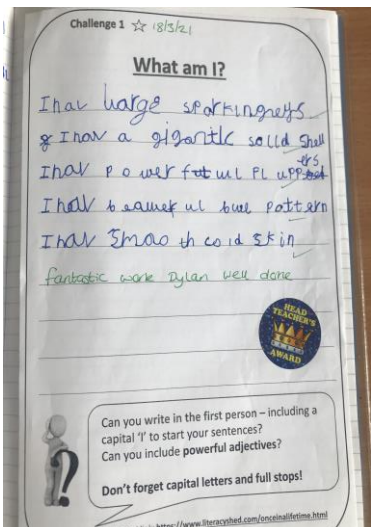 Challenge 1 18/3/21
What am I?
I hav large sparkingneys
& I hav a gigantic solld shell
I hav powerful
I hav beauwful buwe pattern
I hav Smaoth cold skin
fantastic work Dylan well done
HEAD TEACHER'S
AWARD
Can you write in the first person – including a
capital 'I' to start your sentences?
Can you include powerful adjectives?
Don't forget capital letters and full stops!
https://www.literacyshed.com/onceinalifetime.html